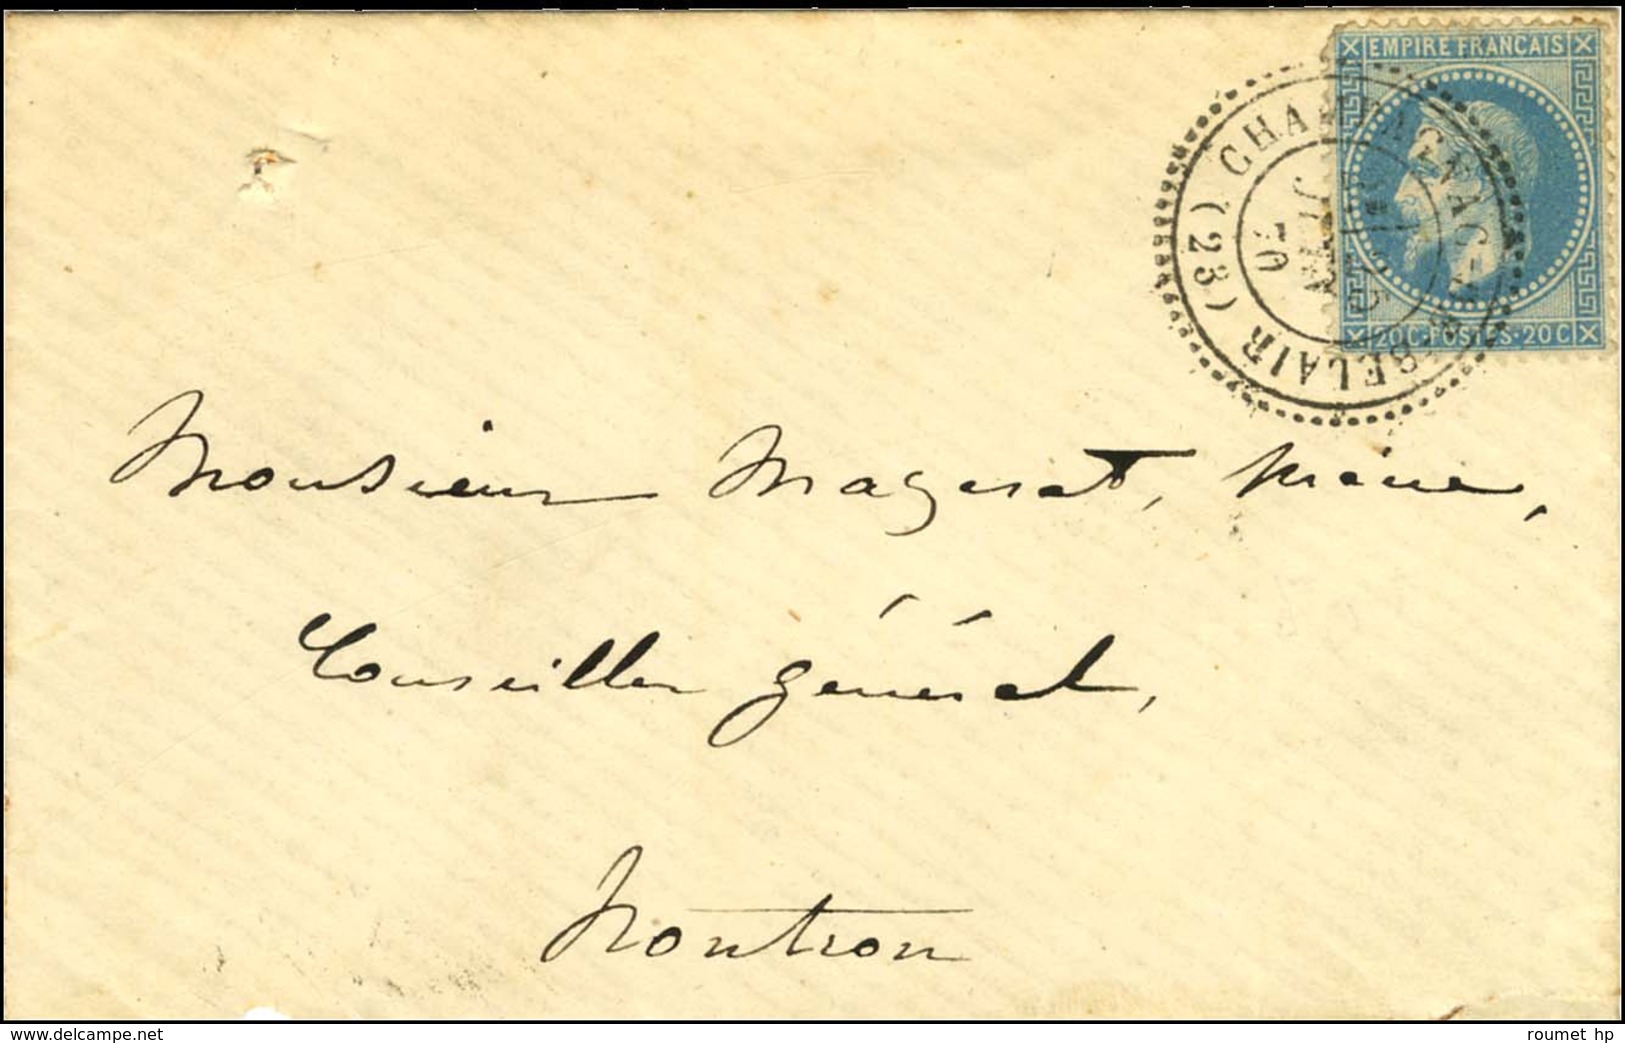 EMPIRE FRANCAIS
20C·POSTES·20C
CHAMPAGNAC-DE-BELAIR (23)
JUIN
70
Monsieur Mazerat, Maire,
Conseiller général,
Nontron
www.delcampe.net
roumet hp